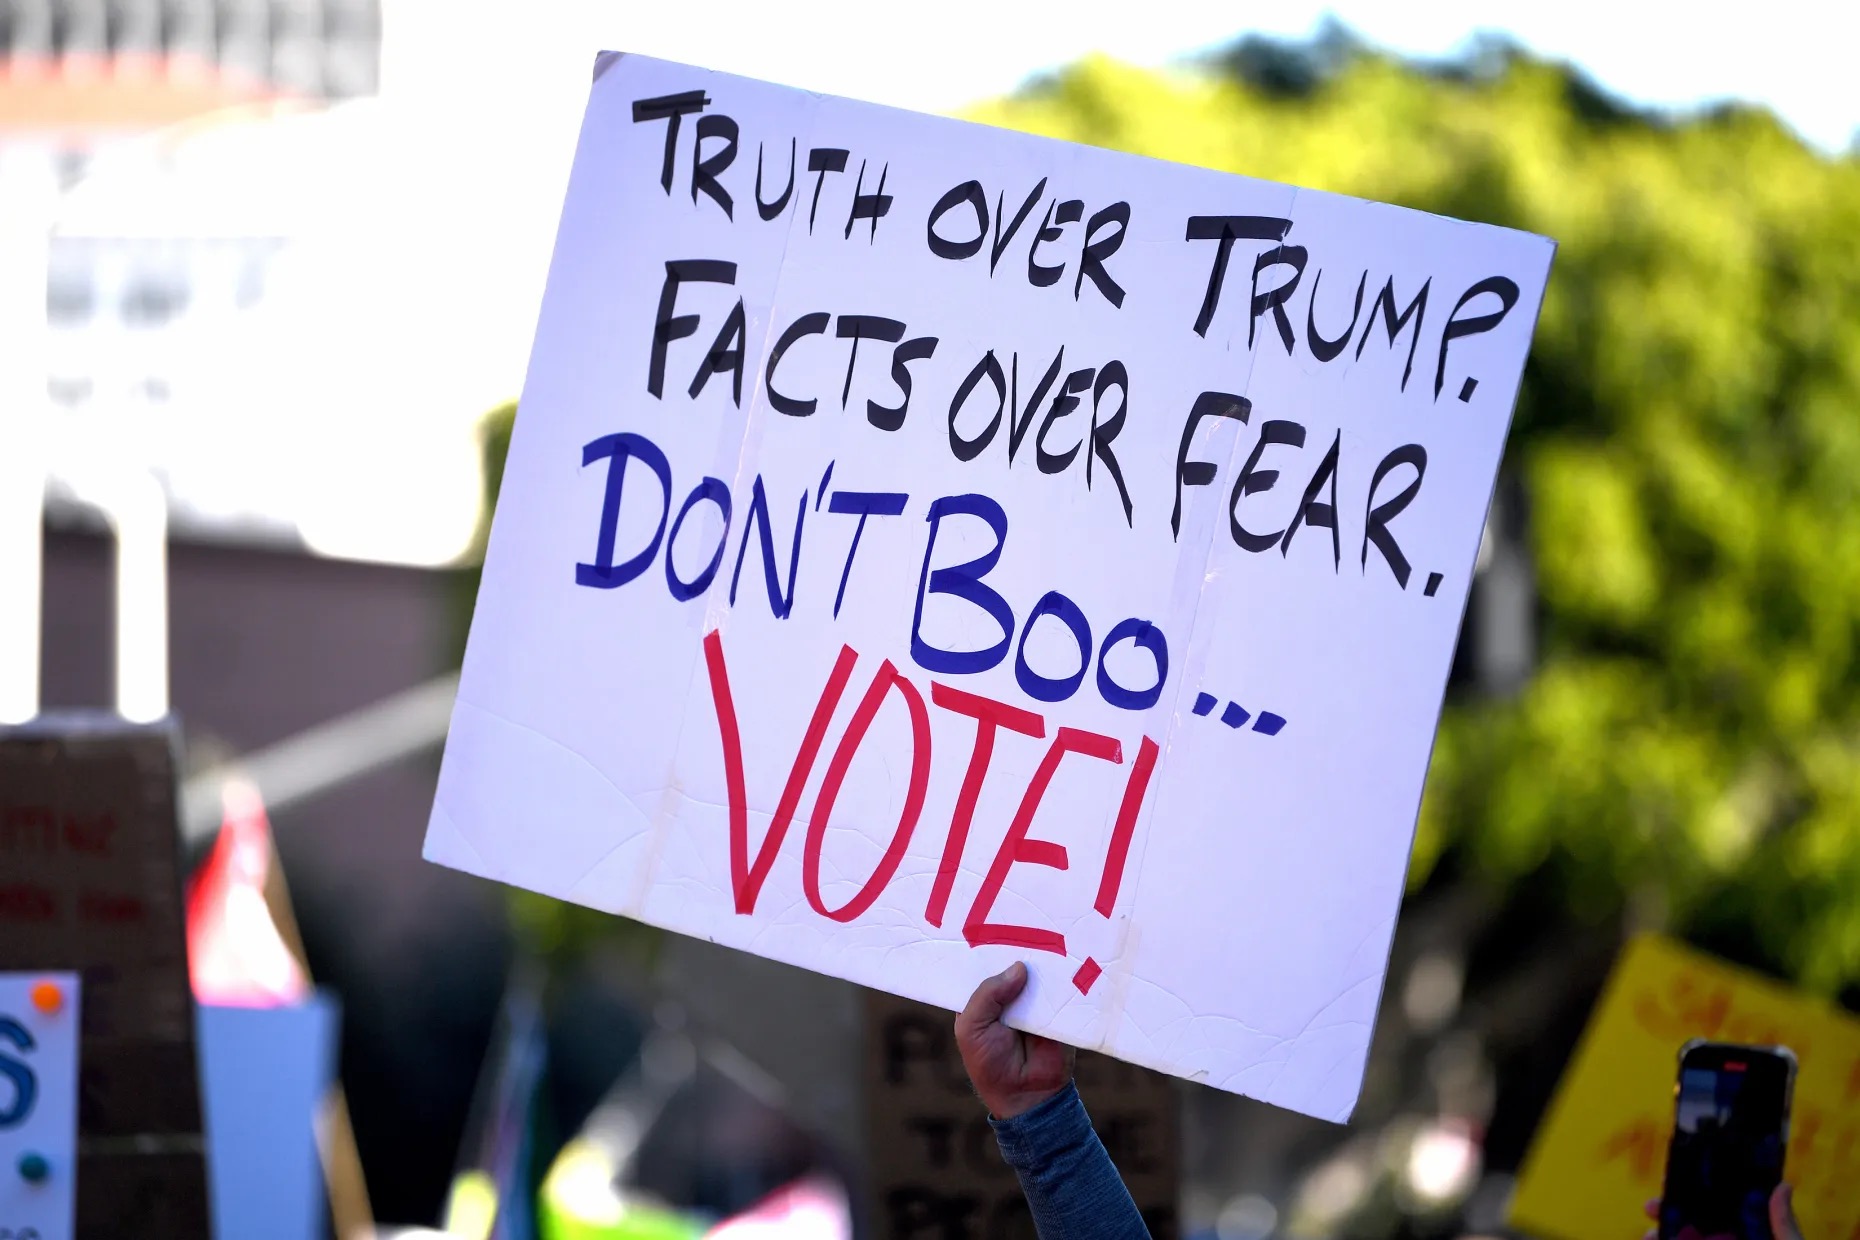 TRUTH OVER TRUMP.
FACTS OVER FEAR.
DON'T BOO...
VOTE!
S
TO